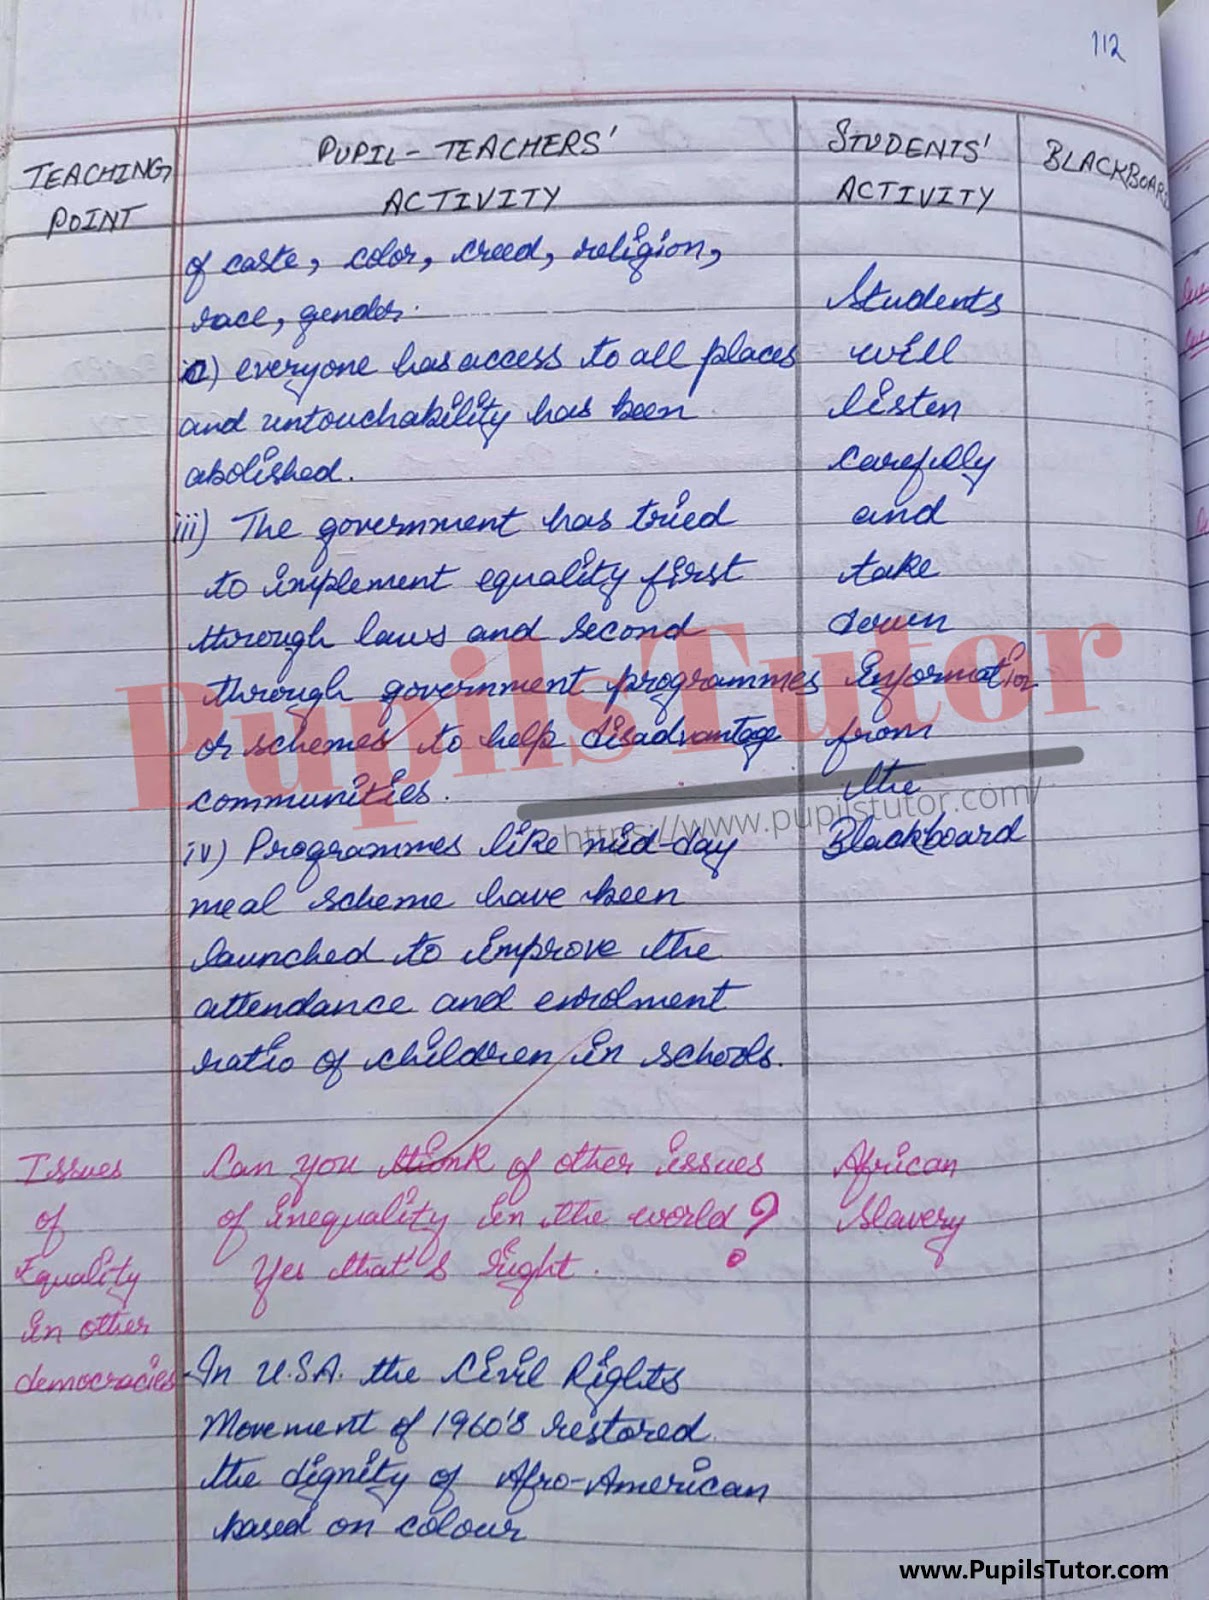 112
TEACHING POINT
PUPIL-TEACHERS' ACTIVITY
STUDENTS' ACTIVITY
BLACKBOARD
of caste, color, creed, religion,
race, gender.
ii) everyone has access to all places
and untouchability has been
abolished.
iii) The government has tried
to implement equality first
through laws and second
through government programmes
or schemes to help disadvantage
communities.
iv) Programmes like mid-day
meal scheme have been
launched to improve the
attendance and enrolment
ratio of children in schools.
Students
will
listen
carefully
and
take
down
information
from
the
Blackboard
Issues
of
Equality
in other
democracies
Can you think of other issues
of inequality in the world?
Yes that's right.
African
Slavery
-In U.S.A. the Civil Rights
Movement of 1960's restored
the dignity of Afro-American
based on colour
PupilsTutor
https://www.pupilstutor.com/
www.PupilsTutor.com